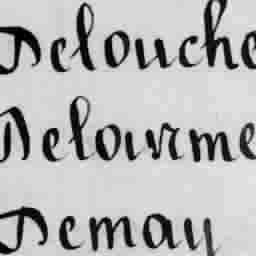 Delouche
Delourme
Demay